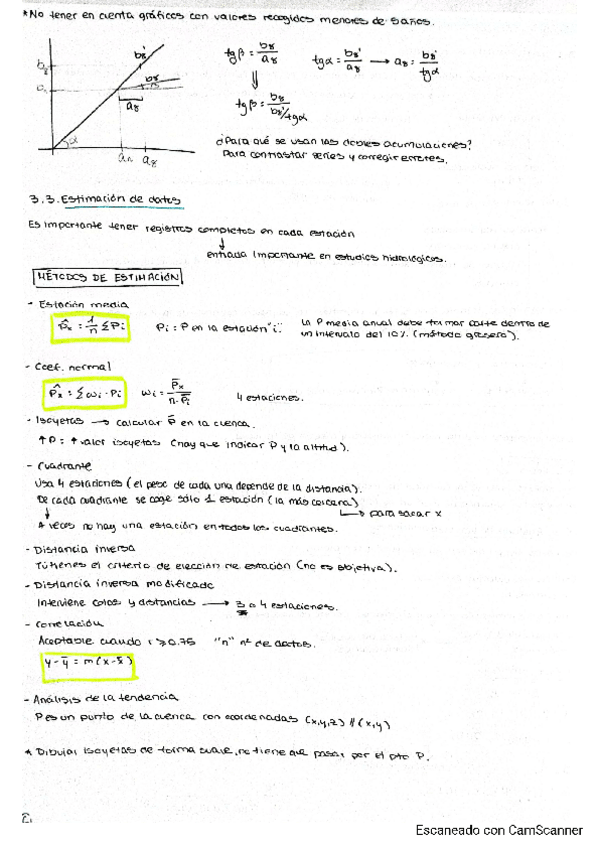 *No tener en cuenta gráficos con valores recogidos menores de 5 años.
b8'
b8
a8
α
an a8
tgβ = b8/a8
tgα = b8'/a8 → a8 = b8'/tgα
⇓
tgβ = b8/b8'/tgα
¿Para qué se usan las dobles acumulaciones?
Para contrastar series y corregir errores.
3.3. Estimación de datos
Es importante tener registros completos en cada estación
↓
entrada importante en estudios hidrológicos.
MÉTODOS DE ESTIMACIÓN
- Estación media
P̂x = 1/n ΣPi
Pi : P en la estación "i".
La P media anual debe tomar corte dentro de
un intervalo del 10% (método grosero).
- Coef. normal
P̂x = Σωi·Pi
ωi = P̄x/n·P̄i
4 estaciones.
- Isoyetas → calcular P̄ en la cuenca.
↑P = ↑valor isoyetas (hay que indicar P y la altitud).
- Cuadrante
Usa 4 estaciones (el peso de cada una depende de la distancia).
De cada cuadrante se coge sólo 1 estación (la más cercana)
↓ ↳ para sacar x
A veces no hay una estación en todos los cuadrantes.
- Distancia inversa
Tú tienes el criterio de elección de estación (no es objetiva).
- Distancia inversa modificada
Interviene cotas y distancias → 3 o 4 estaciones.
- Correlación
Aceptable cuando r ≥ 0.75 "n" nº de datos.
y-ȳ = m(x-x̄)
- Análisis de la tendencia
P es un punto de la cuenca con coordenadas (x,y,z) // (x,y)
* Dibujar isoyetas de forma suave, no tiene que pasar por el pto P.
Escaneado con CamScanner